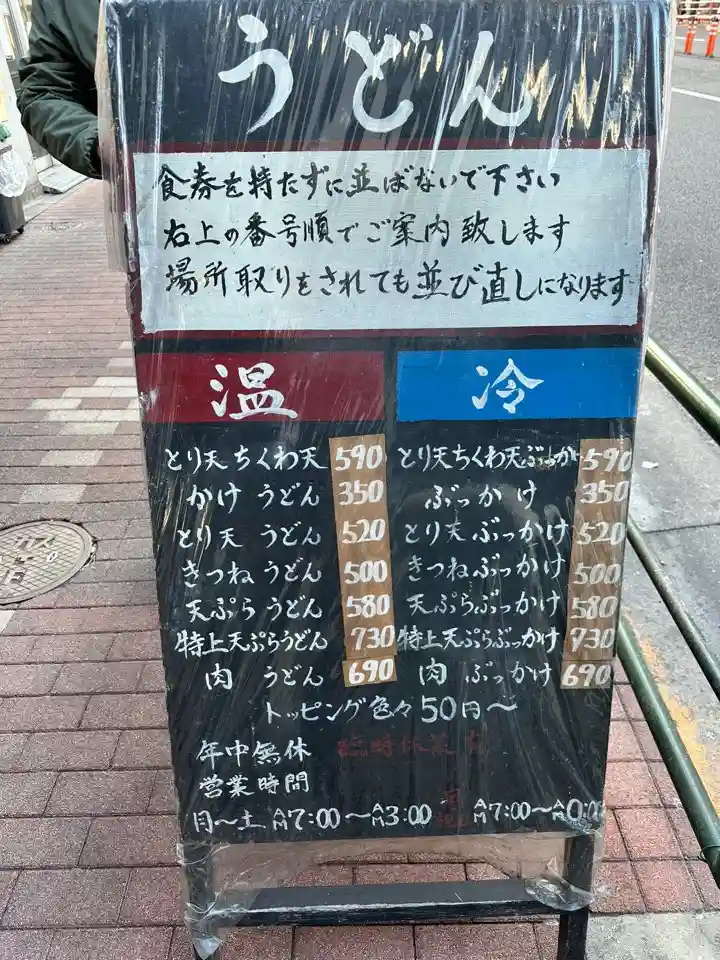 うどん
食券を持たずに並ばないで下さい
右上の番号順でご案内致します
場所取りをされても並び直しになります
温
とり天ちくわ天 590
かけうどん 350
とり天うどん 520
きつねうどん 500
天ぷらうどん 580
特上天ぷらうどん 730
肉うどん 690
冷
とり天ちくわ天ぶっかけ 590
ぶっかけ 350
とり天ぶっかけ 520
きつねぶっかけ 500
天ぷらぶっかけ 580
特上天ぷらぶっかけ 730
肉ぶっかけ 690
トッピング色々50円〜
年中無休 臨時休業
営業時間
月〜土 AM7:00〜AM3:00 AM7:00〜
ガス